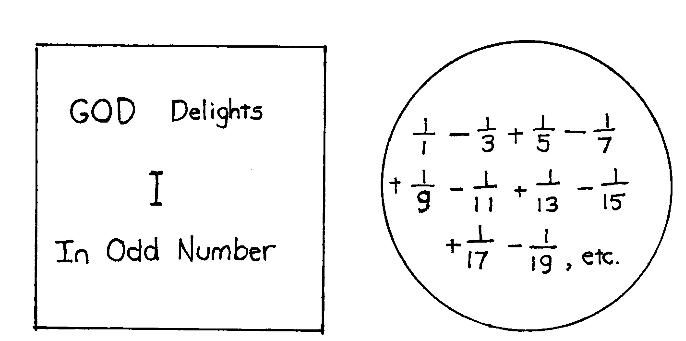 GOD Delights
I
In Odd Number
1/1 − 1/3 + 1/5 − 1/7
+ 1/9 − 1/11 + 1/13 − 1/15
+ 1/17 − 1/19, etc.